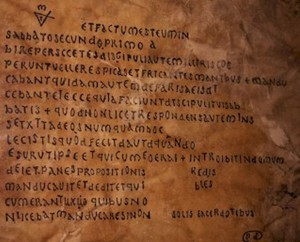 ETFACTUMESTEUMIN
SABBATOSECUNDOPRIMO A
BIREPERSCCETESDISGIPULIAUTEMILLIRISCOE
PERUNTVELLERESPICASETFRICANTESMANIBUS + MANDU
CABANTQUIDAMAUTEMDEFARISAEISDI
CEBANTEIECCEQUIAFACIUNTDISCIPULITUISAB
BATIS + QUODNONLICETRESPONDENSAUTEMINS
SETXTTADEOSNUMQUAMHOC
LECISTISQUODFECITDAUTDQUANDO
ESURUTIPSEETQUICUMEOERAT + INTROIBITINDOMUM
DEIETPANESPROPOSITIONIS REDIS
MANDUCAUITETDEDITETQUI BLES
CUMERANTUXUO QUIBUSNO
NLICEBATMANDUCARESINON SOLIS SACERDOTIBUS